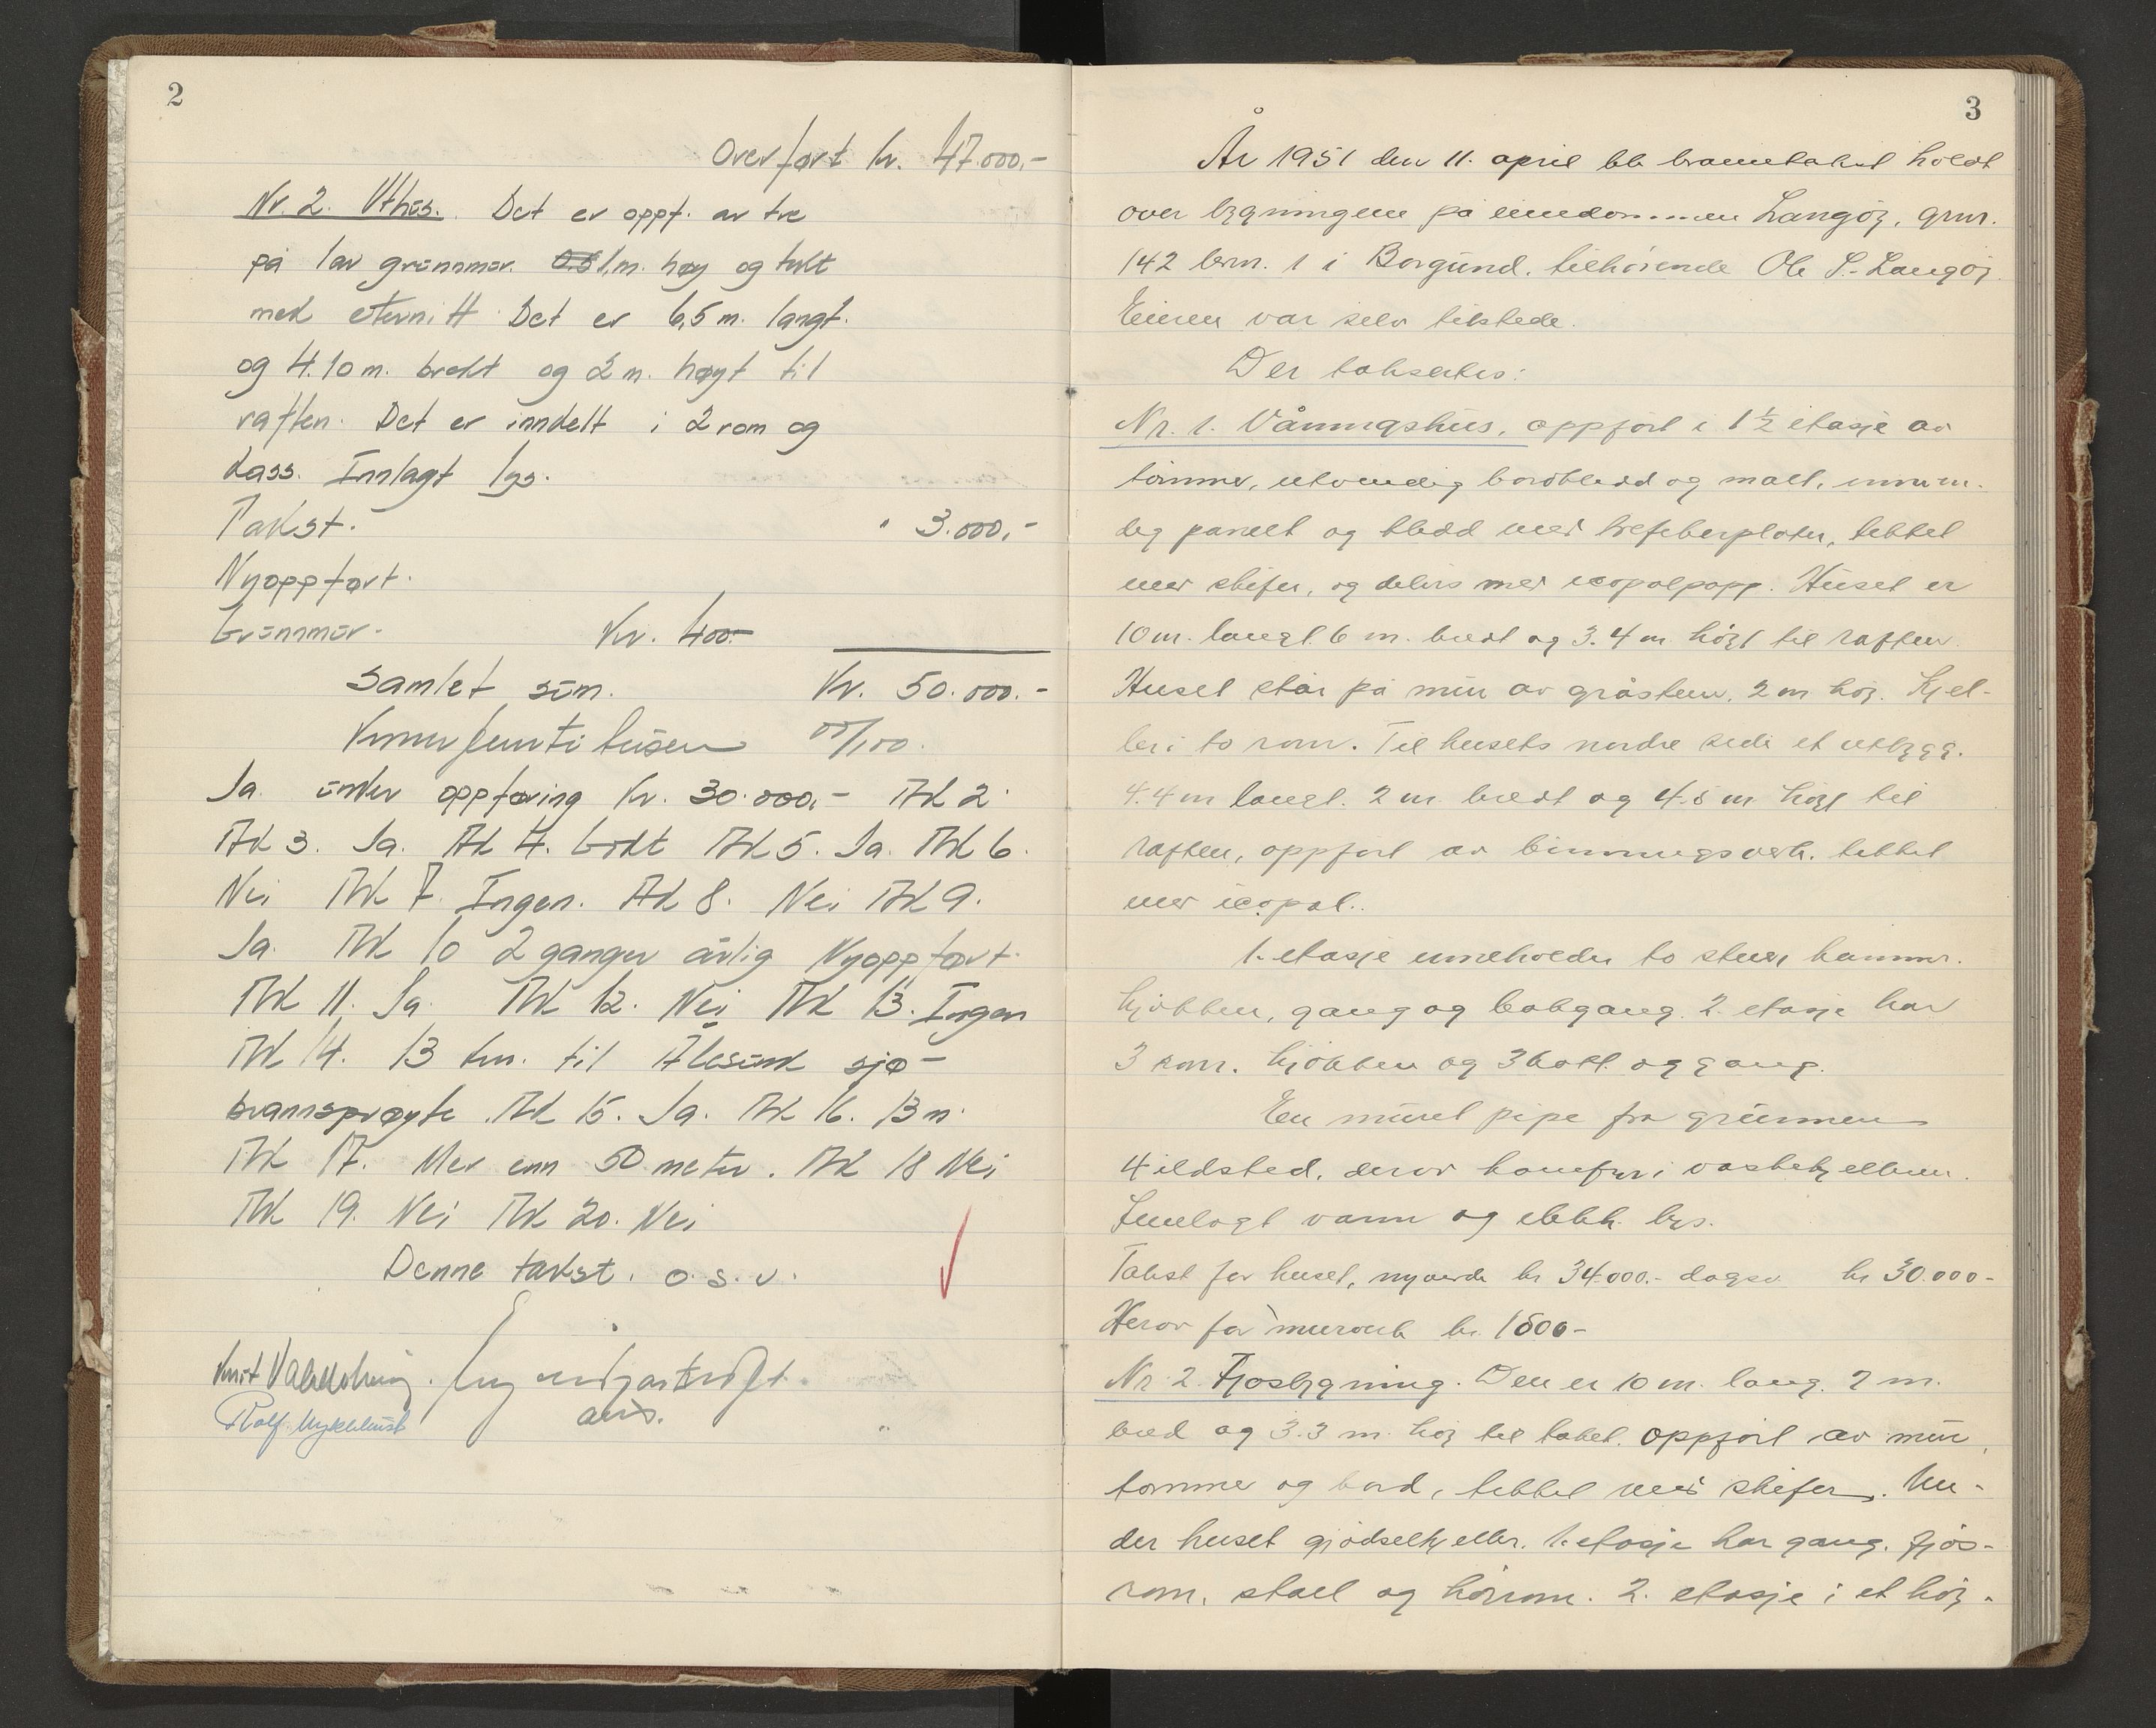 2
Overført kr. 47.000,-
Nr. 2. Uthus. Det er oppf. av tre
på lav grunnmur. 0.8 1,m. høy og tekt
med eternitt. Det er 6,5 m. langt.
og 4.10 m. bredt og 2 m. høgt til
raften. Det er inndelt i 2 rom og
dass. Innlagt lys.
Takst. " 3.000,-
Nyoppført.
Grunnmur. Kr. 400.-
Samlet sum. Kr. 50.000.-
Kroner femti tusen 00/100.
Ja. under oppføring kr. 30.000,- Ad 2.
Ad 3. Ja. Ad 4. Godt Ad 5. Ja. Ad 6.
Nei Ad 7. Ingen. Ad 8. Nei Ad 9.
Ja. Ad 10 2 ganger årlig Nyoppført.
Ad 11. Ja. Ad 12. Nei Ad 13. Ingen
Ad 14. 13 km. til Ålesund sjø-
brannsprøyte. Ad 15. Ja. Ad 16. 13 m.
Ad 17. Mer enn 50 meter. Ad 18 Nei
Ad 19. Nei Ad 20. Nei
Denne takst. o.s.v.
Knut
Rolf Myklebust
3
År 1951 den 11. april ble branntakst holdt
over bygningene på eiendommen Langøy, gnr.
142 brn. 1 i Borgund. tilhørende Ole S. Langøy.
Eieren var selv tilstede.
Der takseres:
Nr. 1. Våningshus, oppført i 1 1/2 etasje av
tømmer, utvendig bordkledd og malt, innven-
dig panelt og kledd med trefiberplater, tekket
med skifer, og delvis med icopalpapp. Huset er
10 m. langt. 6 m. bredt og 3.4 m høgt til raften.
Huset står på mur av gråsten. 2 m høy. Kjel-
ler i to rom. Til husets nordre side et utbygg.
4.4 m langt. 2 m. bredt og 4.5 m høgt til
raften, oppført av binningsverk. tekket
med icopal.
1. etasje inneholder to stuer, kammer.
kjøkken, gang og bakgang. 2. etasje har
3 rom. kjøkken og 3 kott. og gang.
En muret pipe fra grunnen
4 ildsted, derav komfyr i vaskekjelleren.
Innlagt vann og elekk. lys.
Takst for huset, nyverdi kr 34.000.- dagsv. kr 30.000-
Herav for murverk kr. 1500-
Nr. 2. Fjøsbygning. Den er 10 m. lang. 7 m.
bred og 3.3 m. høy til taket. Oppført av mur,
tømmer og bord, tekket med skifer. Un-
der huset gjødselkjeller. 1. etasje har gang. fjøs-
rom, stall og høyrom. 2. etasje i et høy-